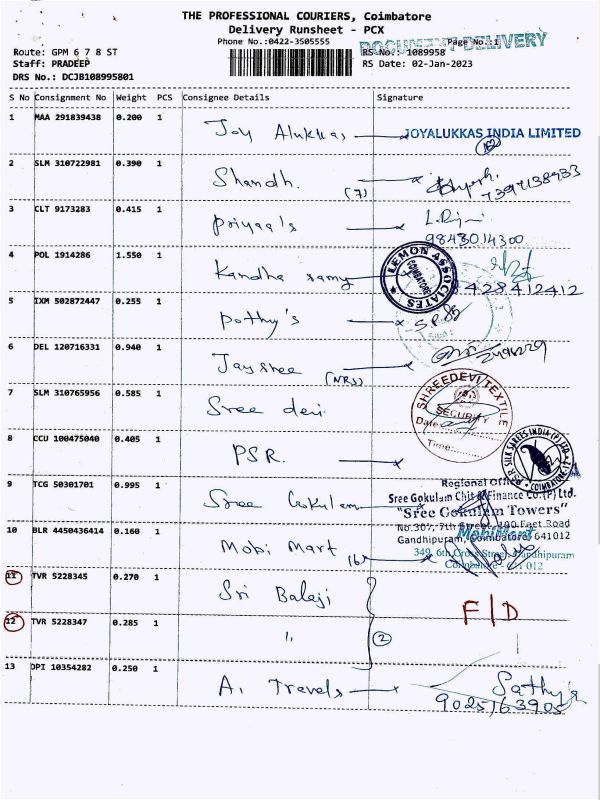 THE PROFESSIONAL COURIERS, Coimbatore
Delivery Runsheet - PCX
Phone No.:0422-3505555
DOCUMENT DELIVERY
Page No.:1
Route: GPM 6 7 8 ST
RS No.: 1089958
Staff: PRADEEP
RS Date: 02-Jan-2023
DRS No.: DCJB108995801
S No Consignment No Weight PCS Consignee Details Signature
1 MAA 291839438 0.200 1 Joy Alukkas JOYALUKKAS INDIA LIMITED
2 SLM 310722981 0.390 1 Shandh. (7)
3 CLT 9173283 0.415 1 Priyaa's
9843014300
4 POL 1914286 1.550 1 Kandha samy LEMON ASSOCIATES COIMBATORE
8428412412
5 IXM 502872447 0.255 1 Pothy's
6 DEL 120716331 0.940 1 Jaysree (NRS)
7 SLM 310765956 0.585 1 Sree devi SHREEDEVI TEXTILE
SECURITY
Date:
Time:
8 CCU 100475040 0.405 1 PSR
SILK SAREES INDIA (P) LTD
COIMBATORE
9 TCG 50301701 0.995 1 Sree Gokulam
Regional Office
Sree Gokulam Chit & Finance Co.(P) Ltd.
"Sree Gokulam Towers"
No.307, 7th Street, 100 Feet Road
Gandhipuram, Coimbatore 641012
10 BLR 4450436414 0.160 1 Mobi Mart
MobiMart
349, 6th Cross Street, Gandhipuram
Coimbatore
11 TVR 5228345 0.270 1 Sri Balaji
F/D
12 TVR 5228347 0.285 1 " 2
13 OPI 10354282 0.250 1 A. Travels Sathya
9025163905